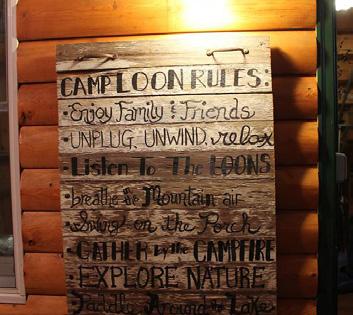 CAMP LOON RULES:
• Enjoy Family & Friends
• UNPLUG, UNWIND, relax
• Listen To The LOONS
• breathe the Mountain air
• Swing on the Porch
• GATHER by the CAMPFIRE
• EXPLORE NATURE
• Paddle Around the Lake